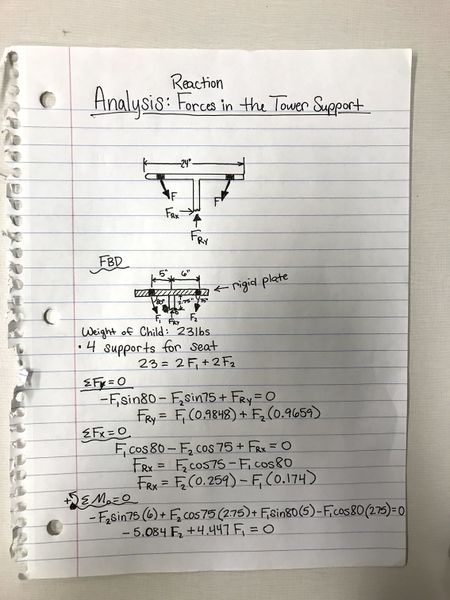 Reaction
Analysis: Forces in the Tower Support
24"
F
F
FRx
FRy
FBD
5" 6"
rigid plate
80° .75" 75°
F₁ FRy F₂
Weight of Child: 23lbs
• 4 supports for seat
23 = 2F₁ + 2F₂
ΣFy = 0
-F₁sin80 - F₂sin75 + FRy = 0
FRy = F₁(0.9848) + F₂(0.9659)
ΣFx = 0
F₁cos80 - F₂cos75 + FRx = 0
FRx = F₂cos75 - F₁cos80
FRx = F₂(0.259) - F₁(0.174)
+ ΣMo = 0
-F₂sin75(6) + F₂cos75(2.75) + F₁sin80(5) - F₁cos80(2.75) = 0
-5.084 F₂ + 4.447 F₁ = 0